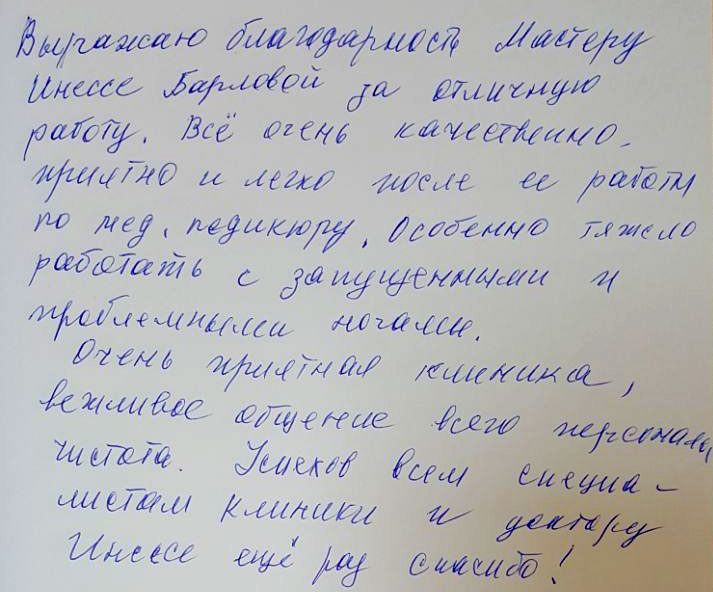 Выражаю благодарность Мастеру
Инессе Барловой за отличную
работу. Всё очень качественно.
приятно и легко после ее работы
по мед. педикюру. Особенно тяжело
работать с запущенными и
проблемными ногами.
Очень приятная клиника,
вежливое общение всего персонала,
чистота. Успехов всем специа-
листам клиники и доктору
Инессе ещё раз спасибо!